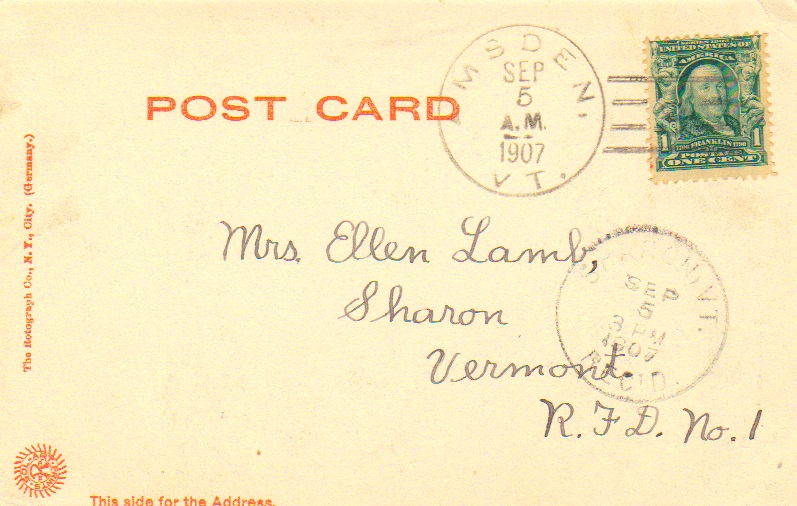 POST CARD
AMSDEN,
SEP
5
A.M.
1907
VT.
SERIES 1902
UNITED STATES OF
AMERICA
1 FRANKLIN 1
POSTAGE
ONE CENT
The Rotograph Co., N. Y., City. (Germany.)
Mrs. Ellen Lamb,
Sharon
Vermont.
R.F.D. No. 1
SHARON, VT.
SEP
5
3 PM
1907
REC'D.
This side for the Address.